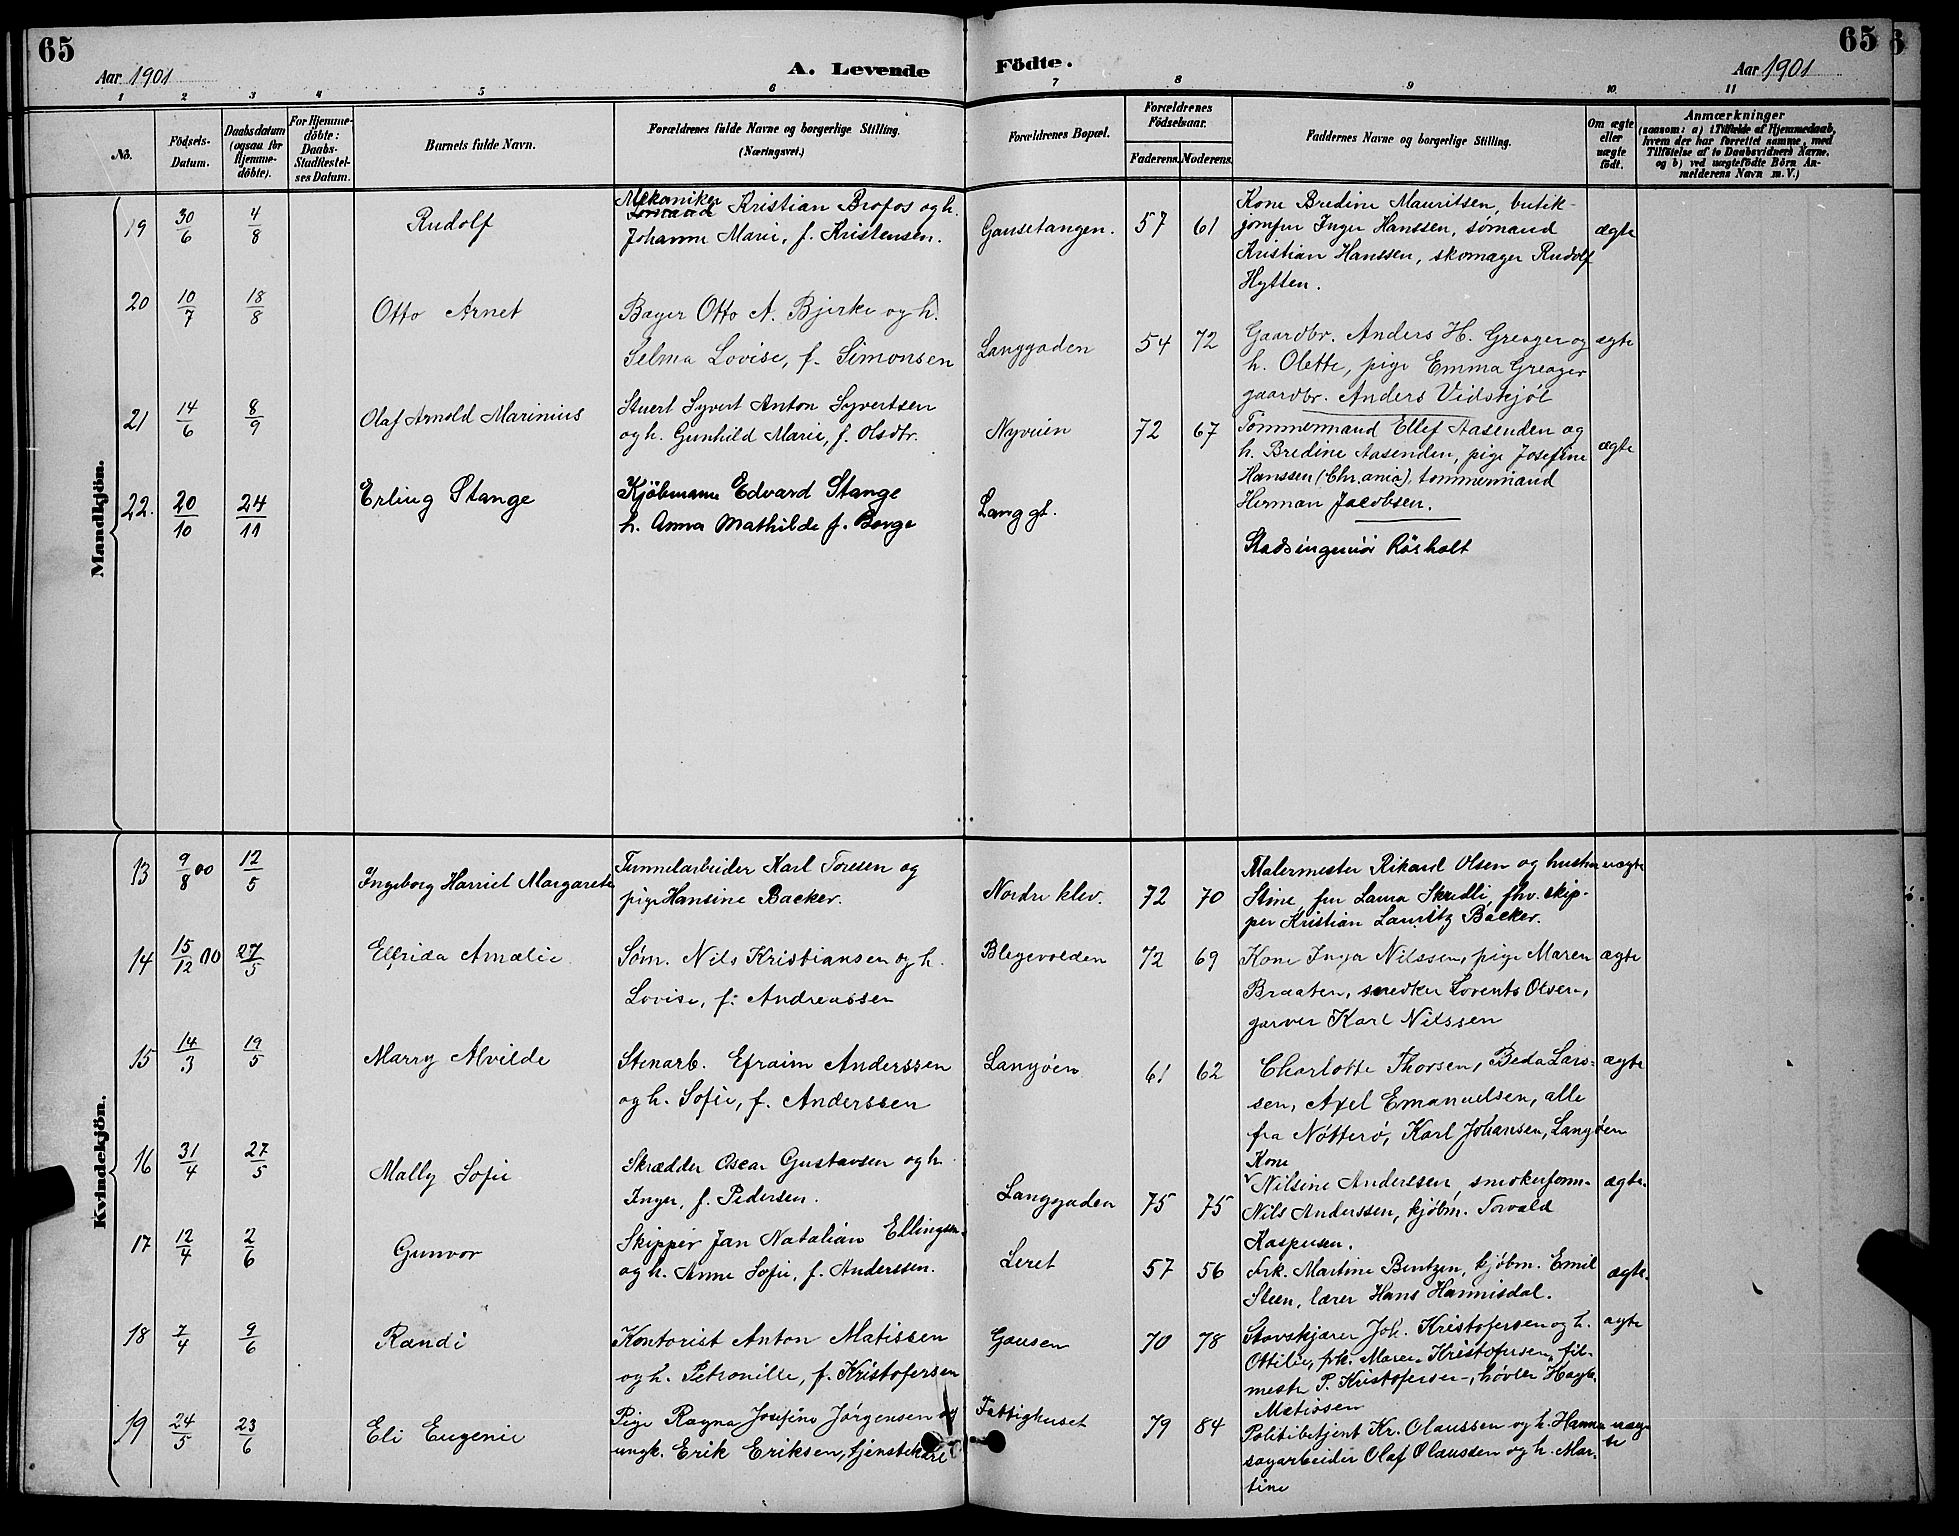 65
Aar 1901
A. Levende Födte.
Aar 1901
65
1 2 3 4 5 6 7 8 9 10 11
No.
Födsels-Datum.
Daabsdatum (ogsaa for Hjemme-döbte).
For Hjemme-döbte: Daabs-Stadfæstel-ses Datum.
Barnets fulde Navn.
Forældrenes fulde Navne og borgerlige Stilling. (Næringsvei.)
Forældrenes Bopæl.
Forældrenes Födselsaar.
Faderens. Moderens.
Faddernes Navne og borgerlige Stilling.
Om ægte eller uægte födt.
Anmærkninger
(saasom: a) i Tilfælde af Hjemmedaab, hvem der har forrettet samme, med Tilföielse af to Daabsvidners Navne, og b) ved uægtefödte Börn An-melderens Navn m. V.)
Mandkjön.
19 30/6 4/8 Rudolf
Mekaniker Kristian Brofos og h.
Johanne Marie, f. Kristensen.
Gausetangen. 57 61
Kone Bredine Mauritsen, butik-
jomfru Inger Hanssen, sømand
Kristian Hanssen, skomager Rudolf
Hytten.
ægte
20 10/7 18/8 Otto Arnet
Bager Otto A. Bjerke og h.
Selma Lovise, f. Simonsen
Langgaden 54 72
Gaardbr. Anders H. Greager og
h. Olette, pige Emma Greager
gaardbr. Anders Vidskjøl
ægte
21 14/6 8/9 Olaf Arnold Marinius
Stuert Syvert Anton Syvertsen
og h. Gunhild Marie, f. Olsdtr.
Nyveien 72 67
Tømmermand Ellef Aasenden og
h. Bredine Aasenden, pige Josefine
Hanssen (Chr.ania), tømmermand
Herman Jacobsen.
ægte
22. 20/10 24/11 Erling Stange
Kjöbmann Edvard Stange
h. Anna Mathilde f. Borge
Langgt.
Stadsingeniör Rösholt
Kvindekjön.
13 9/8 00 12/5 Ingeborg Harriet Margarete
Tunnelarbeider Karl Toresen og
pige Hansine Backer.
Nordre klev. 72 70
Malermester Rikard Olsen og hustru
Stine, fru Laura Skredli, fhv. skip-
per Kristian Lauritz Backer.
uægte
14 15/12 00 27/5 Elfrida Amalie
Søm. Nils Kristiansen og h.
Lovise, f. Andreassen
Blegevolden 72 69
Kone Inga Nilssen, pige Maren
Braaten, snedker Lorents Olsen,
garver Karl Nilssen
ægte
15 14/3 19/5 Marry Alvilde
Stenarb. Efraim Anderssen
og h. Sofie, f. Anderssen
Langøen 61 62
Charlotte Thorsen, Beda Lars-
sen, Axel Emanuelsen, alle
fra Nötterö, Karl Johansen, Langøen
ægte
16 31/4 27/5 Mally Sofie
Skrædder Oscar Gustavsen og h.
Inger, f. Pedersen.
Langgaden 75 75
Kone
Nilsine Anderssen,
Nils Anderssen, kjøbm. Torvald
Kaspersen.
ægte.
17 12/4 2/6 Gunvor
Skipper Jan Natalian Ellingsen
og h. Anne Sofie, f. Anderssen.
Leret 57 56
Frk. Martine Bentzen, kjøbm. Emil
Steen, lærer Hans Hannisdal.
ægte.
18 7/4 9/6 Randi
Kontorist Anton Matissen
og h. Petronille, f. Kristofersen
Gausen 70 78
Stavskjærer Joh. Kristofersen og h.
Ottilie, frk. Maren Kristofersen, fil-
mester P. Kristofersen, høvler Hagb.
Matissen
ægte
19 24/5 23/6 Eli Eugenie
Pige Ragna Josefine Jörgensen og
ungk. Erik Eriksen, tjenstekarl
Fattighuset 79 84
Politibetjent Kr. Olaussen og h. Hanna
sagarbeider Olaf Olaussen og h. Mar-
tine
uæg-
te